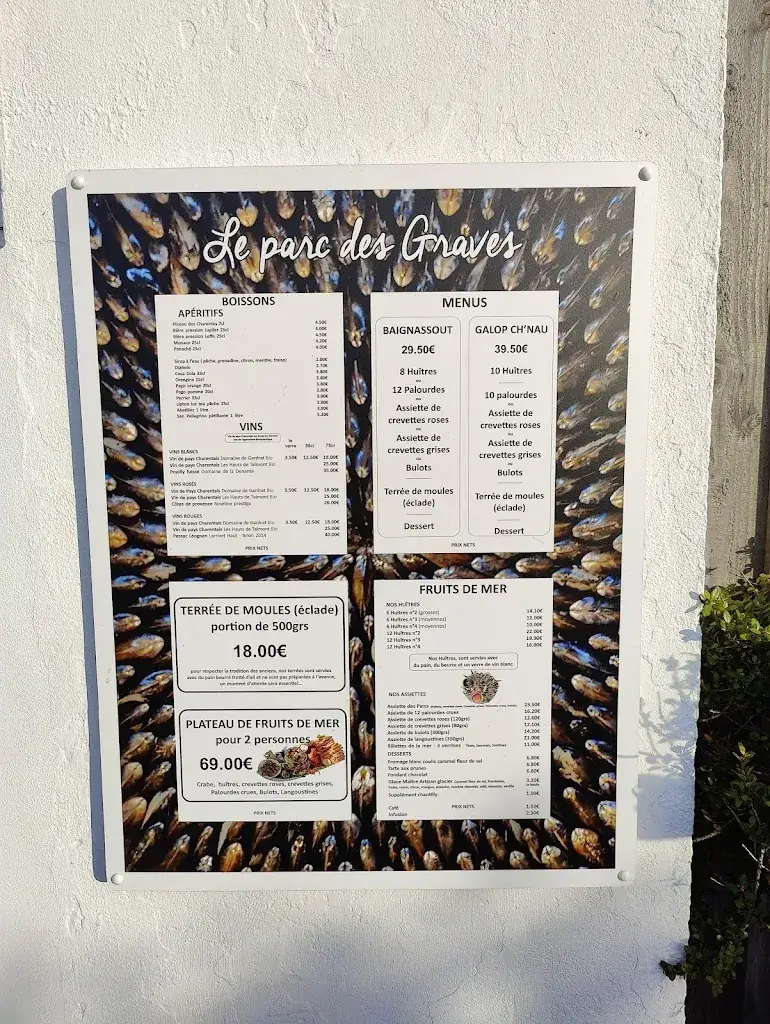 Le parc des Graves
BOISSONS
APÉRITIFS
Pineau des Charentes 7cl 4.50€
Bière pression Jupiler 25cl 4.00€
Bière pression Leffe 25cl 4.50€
Monaco 25cl 4.20€
Panaché 25cl 4.00€
Sirop à l'eau ( pêche, grenadine, citron, menthe, fraise) 2.00€
Diabolo 2.70€
Coca Cola 33cl 3.80€
Orangina 25cl 3.80€
Pago orange 20cl 3.80€
Pago pomme 20cl 3.80€
Perrier 33cl 3.80€
Lipton ice tea pêche 25cl 3.80€
Abatilles 1 litre
San Pellegrino pétillante 1 litre
VINS
le verre 50cl 75cl
VINS BLANCS
Vin de pays Charentais Domaine de Gardrat Bio 3.50€ 12.50€ 18.00€
Vin de pays Charentais Les Hauts de Talmont Bio 25.00€
Pouilly fuissé Domaine de la Denante 35.00€
VINS ROSÉS
Vin de pays Charentais Domaine de Gardrat Bio 3.50€ 12.50€ 18.00€
Vin de pays Charentais Les Hauts de Talmont Bio 25.00€
Côtes de provence Roseline prestige 26.00€
VINS ROUGES
Vin de pays Charentais Domaine de Gardrat Bio 3.50€ 12.50€ 18.00€
Vin de pays Charentais Les Hauts de Talmont Bio 25.00€
Pessac Léognan Larrivet Haut - Brion 2014 40.00€
PRIX NETS
MENUS
BAIGNASSOUT
29.50€
8 Huîtres
ou
12 Palourdes
ou
Assiette de
crevettes roses
ou
Assiette de
crevettes grises
ou
Bulots
Terrée de moules
(éclade)
Dessert
GALOP CH'NAU
39.50€
10 Huîtres
10 palourdes
ou
Assiette de
crevettes roses
ou
Assiette de
crevettes grises
ou
Bulots
Terrée de moules
(éclade)
Dessert
PRIX NETS
TERRÉE DE MOULES (éclade)
portion de 500grs
18.00€
pour respecter la tradition des anciens, nos terrées sont servies
avec du pain beurré frotté d'ail et ne sont pas préparées à l'avance,
un moment d'attente sera essentiel...
PLATEAU DE FRUITS DE MER
pour 2 personnes
69.00€
Crabe, huîtres, crevettes roses, crevettes grises,
Palourdes crues, Bulots, Langoustines
PRIX NETS
FRUITS DE MER
NOS HUÎTRES
6 Huîtres n°2 (grosses) 14.10€
6 Huîtres n°3 (moyennes) 12.00€
6 Huîtres n°4 (moyennes) 10.00€
12 Huîtres n°2 22.00€
12 Huîtres n°3 19.90€
12 Huîtres n°4 16.80€
Nos Huîtres, sont servies avec
du pain, du beurre et un verre de vin blanc
NOS ASSIETTES
Assiette des Parcs 23.50€
Assiette de 12 palourdes crues 16.20€
Assiette de crevettes roses (120grs) 12.60€
Assiette de crevettes grises (80grs) 12.10€
Assiette de bulots (300grs) 14.20€
Assiette de langoustines (350grs) 21.00€
Rillettes de la mer - 3 verrines Thon, Saumon, Sardines 11.00€
DESSERTS
Fromage blanc coulis caramel fleur de sel 6.80€
Tarte aux prunes 6.80€
Fondant chocolat 6.80€
Glace Maître Artisan glacier 3.20€
la boule
Supplément chantilly 1.00€
Café PRIX NETS
Infusion 2.30€